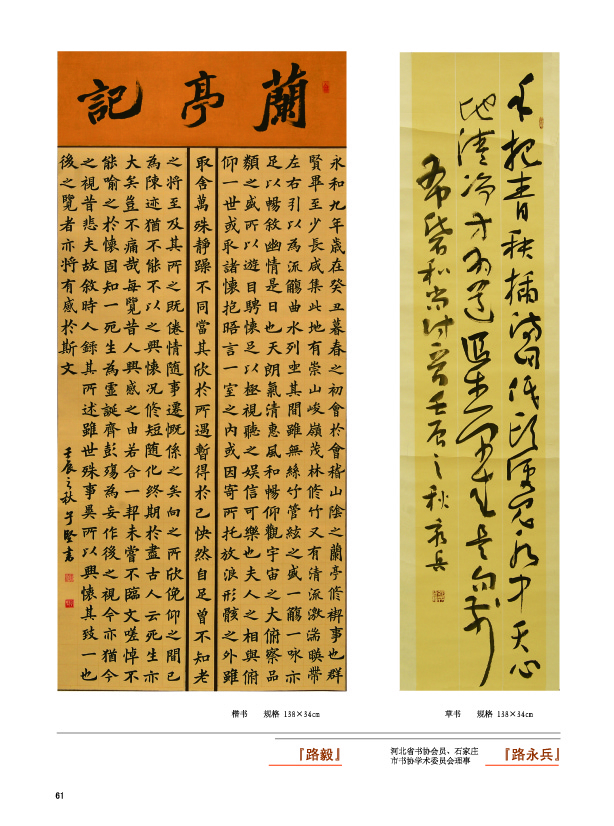 手把青秧插滿田低頭便見水中天心
地清净方為道退步原來是向前
布袋和尚詩 壬辰之秋永兵
蘭亭記
永和九年歲在癸丑暮春之初會於會稽山陰之蘭亭修禊事也群
賢畢至少長咸集此地有崇山峻嶺茂林修竹又有清流激湍暎帶
左右引以為流觴曲水列坐其間雖無絲竹管絃之盛一觴一咏亦
足以暢敘幽情是日也天朗氣清惠風和暢仰觀宇宙之大俯察品
類之盛所以遊目騁懷足以極視聽之娛信可樂也夫人之相與俯
仰一世或取諸懷抱晤言一室之內或因寄所托放浪形骸之外雖
取舍萬殊靜躁不同當其欣於所遇暫得於己怏然自足曾不知老
之將至及其所之既倦情隨事遷慨係之矣向之所欣俛仰之間已
為陳迹猶不能不以之興懷況修短隨化終期於盡古人云死生亦
大矣豈不痛哉每覽昔人興感之由若合一契未嘗不臨文嗟悼不
能喻之於懷固知一死生為虛誕齊彭殤為妄作後之視今亦猶今
之視昔悲夫故敘時人錄其所述雖世殊事異所以興懷其致一也
後之覽者亦將有感於斯文
壬辰之秋 堅書
楷书 规格 138×34cm
草书 规格 138×34cm
『路毅』
河北省书协会员、石家庄
市书协学术委员会理事
『路永兵』
61